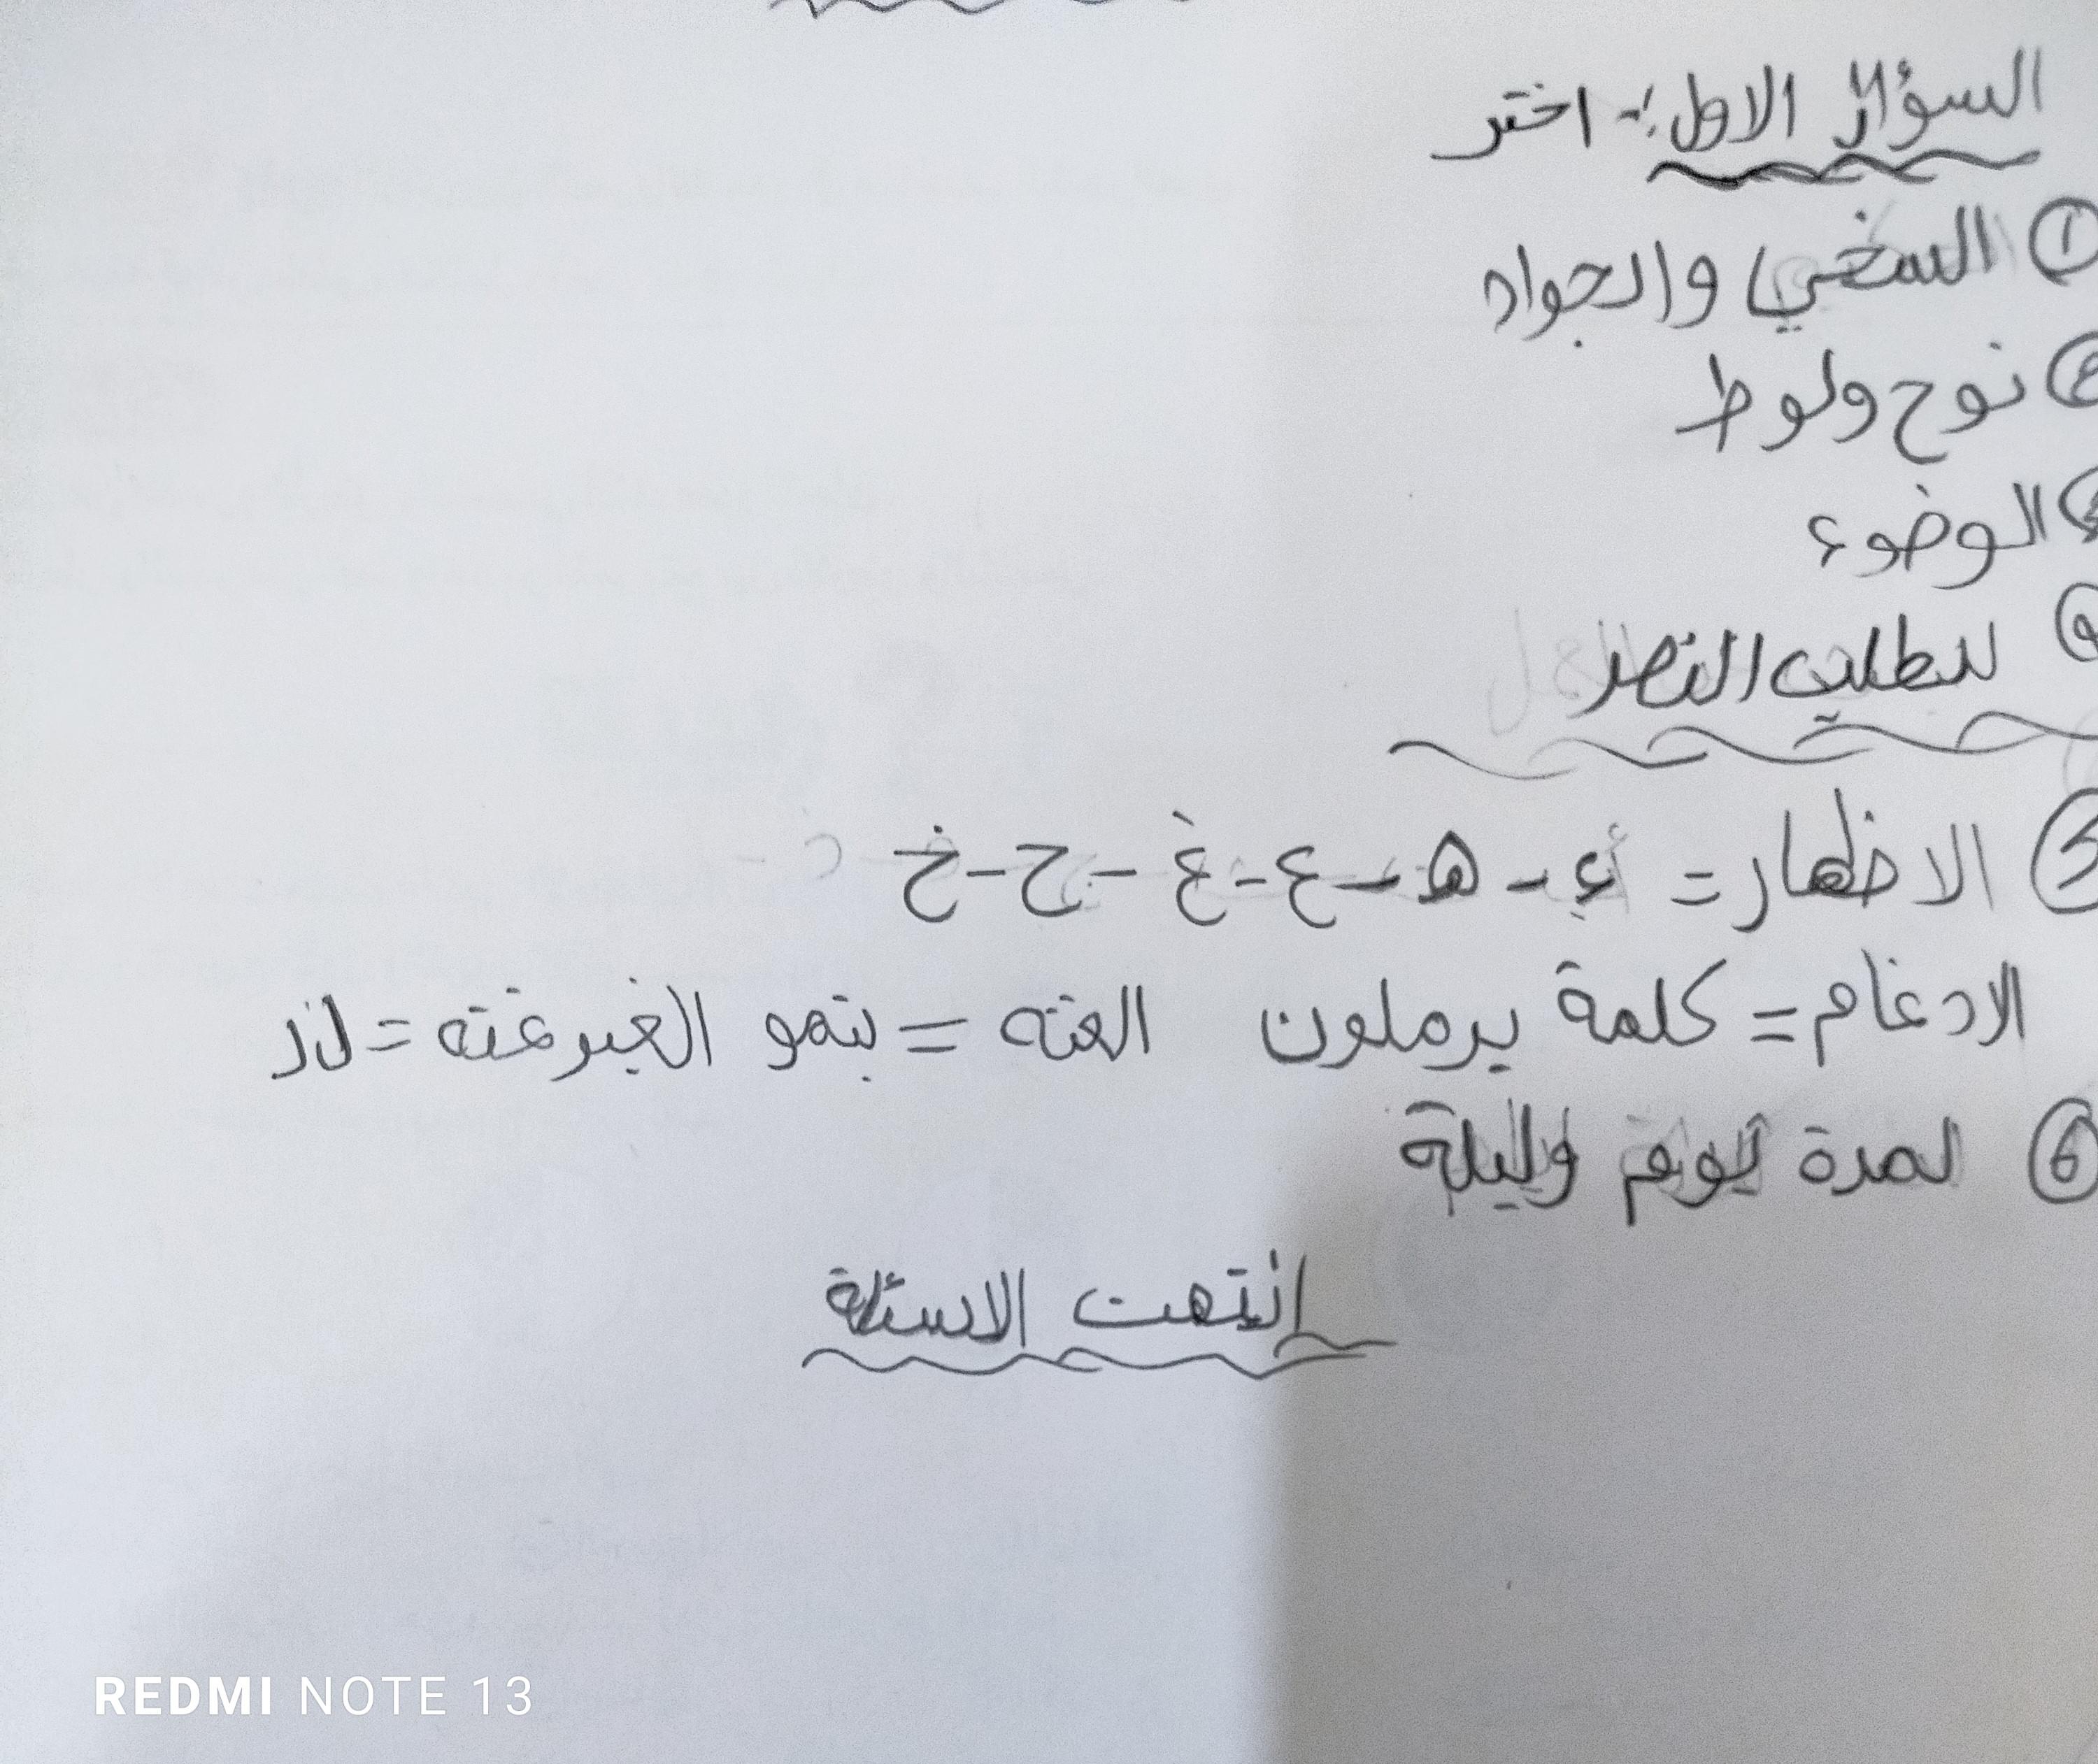 السؤال الاول:- اختر
① السخي والجواد
② نوح ولوط
الوضوء
للطلب النصر
5 الاظهار = ء - ه - ع - غ - ح - خ
الادغام = كلمة يرملون الغنه = ينمو الغير غنه = ل ر
⑥ لمدة يوم وليلة
انتهت الاسئلة
REDMI NOTE 13